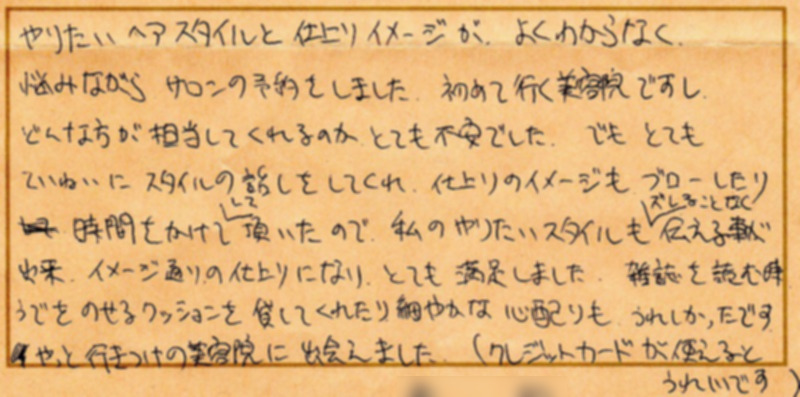 やりたいヘアスタイルと仕上りイメージが、よくわからなく、
悩みながら サロンの予約をしました。初めて行く美容院ですし、
どんな方が担当してくれるのか とても不安でした。でも とても
ていねいに スタイルの話しをしてくれ、仕上りのイメージも ブローしたり
時間をかけて して 頂いたので、私のやりたいスタイルも ズレることなく 伝える事が
出来、イメージ通りの仕上りになり、とても 満足しました。雑誌を読む時
うでをのせるクッションを 貸してくれたり 細やかな 心配りも、うれしかったです
やっと 行きつけの美容院に 出会えました。(クレジットカードが使えると
うれしいです)